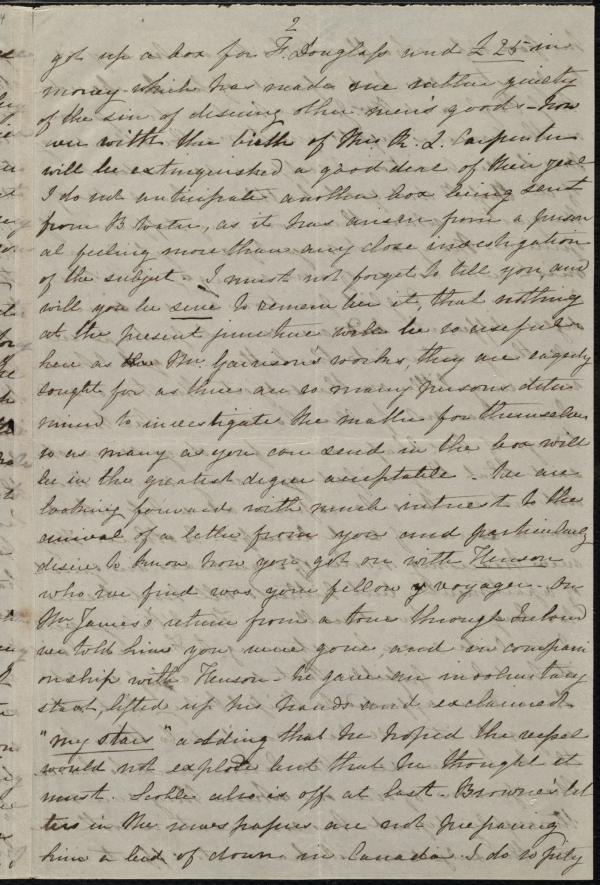 2
got up a box for F. Douglass and £25 in
money which has made me rather guilty
of the sin of desiring other men's goods - how
ever with the birth of this R. L. Carpenter
will be extinguished a good deal of their zeal
I do not anticipate another box being sent
from B Water, as it has arisen from a person
al feeling more than any close investigation
of the subject - I must not forget to tell you and
will you be sure to remember it, that nothing
at the present juncture will be so useful
here as Mr. Garrison's works, they are eagerly
sought for as there are so many persons deter
mined to investigate the matter for themselves
so as many as you can send in the box will
be in the greatest degree acceptable - We are
looking forward with much interest to the
arrival of a letter from you and particularly
desire to know how you got on with Henson
who we find was your fellow voyager - On
Mr. James's return from a tour through Ireland
we told him you were gone, and in compani
onship with Henson - he gave an involuntary
start, lifted up his hands and exclaimed
"my stars" adding that he hoped the vessel
would not explode but that he thought it
must. Scoble also is off at last - Browne's let
ters in the newspapers are not preparing
him a bed of down in Canada. I do so pity